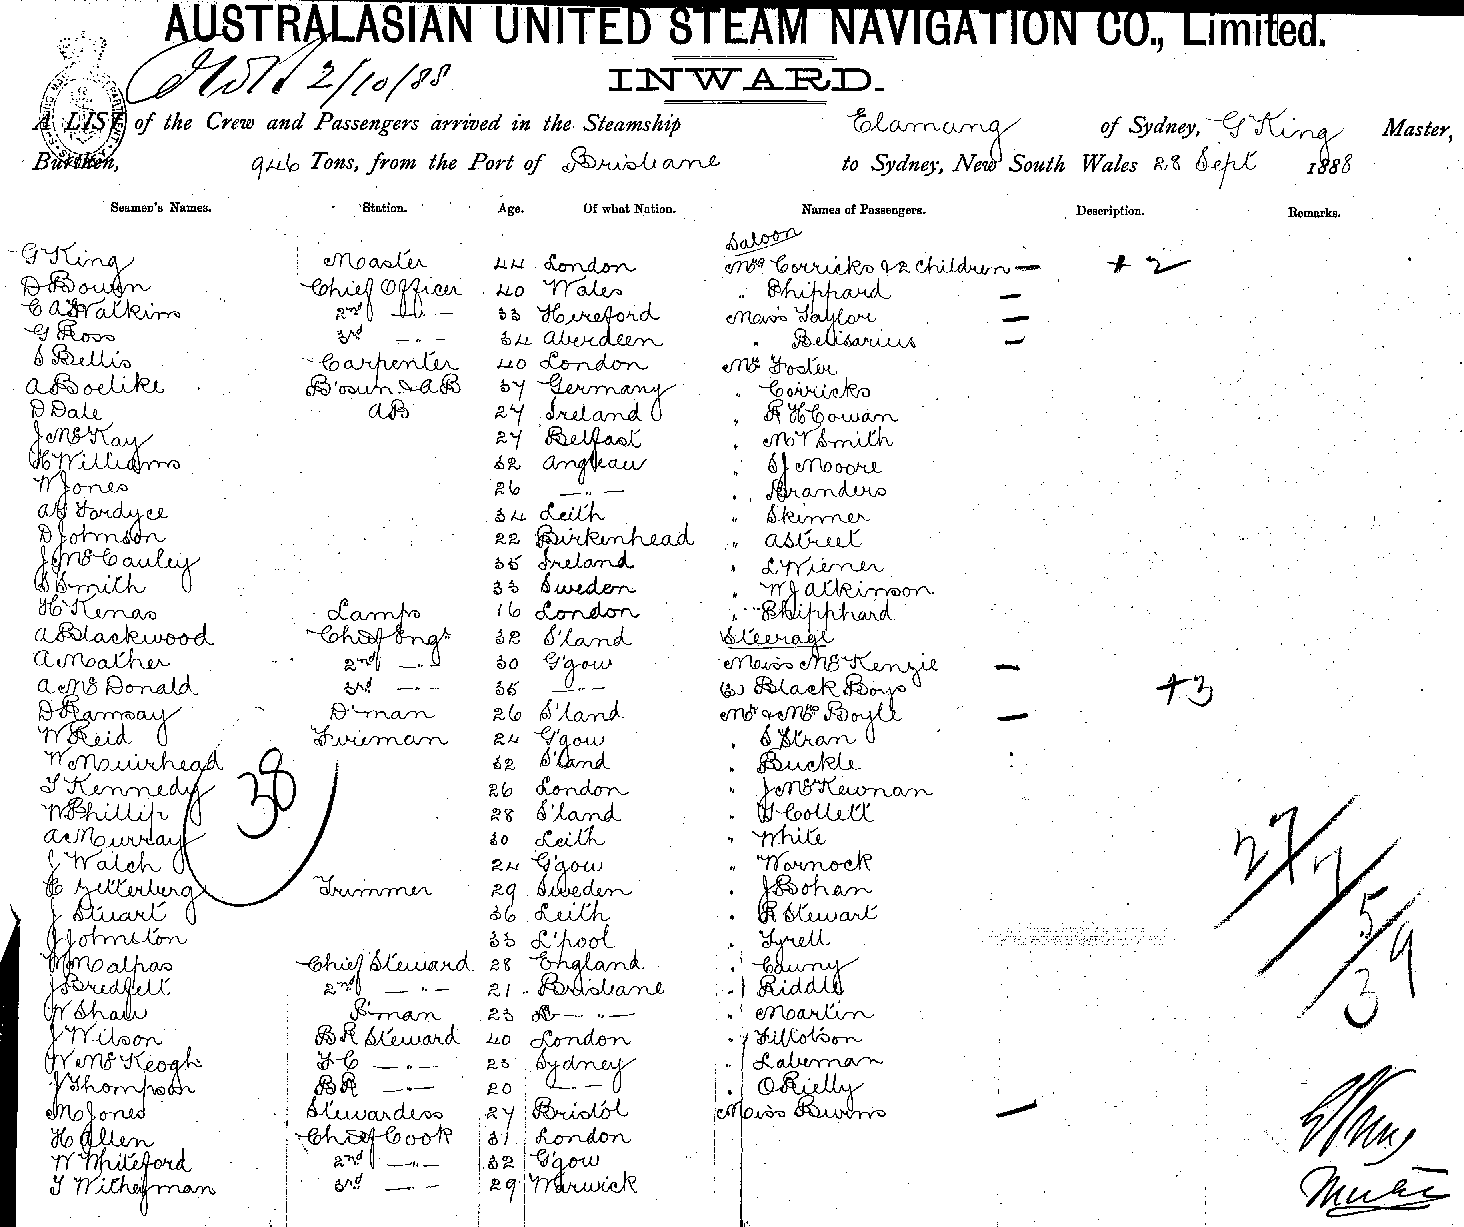 AUSTRALASIAN UNITED STEAM NAVIGATION CO., Limited.
2/10/88
INWARD.
A LIST of the Crew and Passengers arrived in the Steamship Elamang of Sydney, G King Master,
Burthen, 946 Tons, from the Port of Brisbane to Sydney, New South Wales 28 Sept 1888
Seamen's Names. Station. Age. Of what Nation. Names of Passengers. Description. Remarks.
Saloon
G King Master 44 London Mrs Corricks & 2 Children — + 2
D Bowen Chief Officer 40 Wales " Shippard —
C A Watkins 2nd —"— 33 Hereford Miss Taylor —
G Ross 3rd —"— 34 Aberdeen " Belisarius —
S Bellis Carpenter 40 London Mr Foster
A Boelike B'osun & AB 37 Germany " Corricks
D Dale AB 27 Ireland " R H Cowan
J McKay 27 Belfast " M T Smith
H Williams 32 " S J Moore
W Jones 26 —"— " Branders
A G Fordyce 34 Leith " Skinner
D Johnson 22 Birkenhead " A Street
J McCauley 35 Ireland " L Wiener
S Smith 33 Sweden " W J Atkinson
H Kenas Lamps 16 London " Shipphard
A Blackwood Chief Engr 32 S'land Steerage
A Mather 2nd —"— 30 G'gow Miss McKenzie —
A McDonald 3rd —"— 35 —"— (3) Black Boys +3
D Ramsay D'man 26 S'land Mr & Mrs Boyle —
W Reid Fireman 24 G'gow " S Stran
W Muirhead 32 S'land " Buckle
T Kennedy 26 London " J McKewnan
W Phillip 28 S'land " G Collett
A Murray 30 Leith " White
J Walch 24 G'gow " Wornock
C Zetterberg Trimmer 29 Sweden " J Bohan
J Stuart 36 Leith " R Stewart
J Johnston 33 L'pool " Tyrell
W Malpas Chief Steward 28 England "
J Bredfelt 2nd —"— 21 Brisbane " Riddle
W Shaw P'man 23 D— "— " Martin
J Wilson BR Steward 40 London " Tillotson
W McKeogh FC —"— 23 Sydney " Laberman
J Thompson BR —"— 20 —"— " O Rielly
M Jones Stewardess 27 Bristol Miss Burns —
H Allen Chief Cook 31 London
W Whiteford 2nd —"— 32 G'gow
T Witheyman 3rd —"— 29 Warwick
38
27/7/5/39
G King
Master